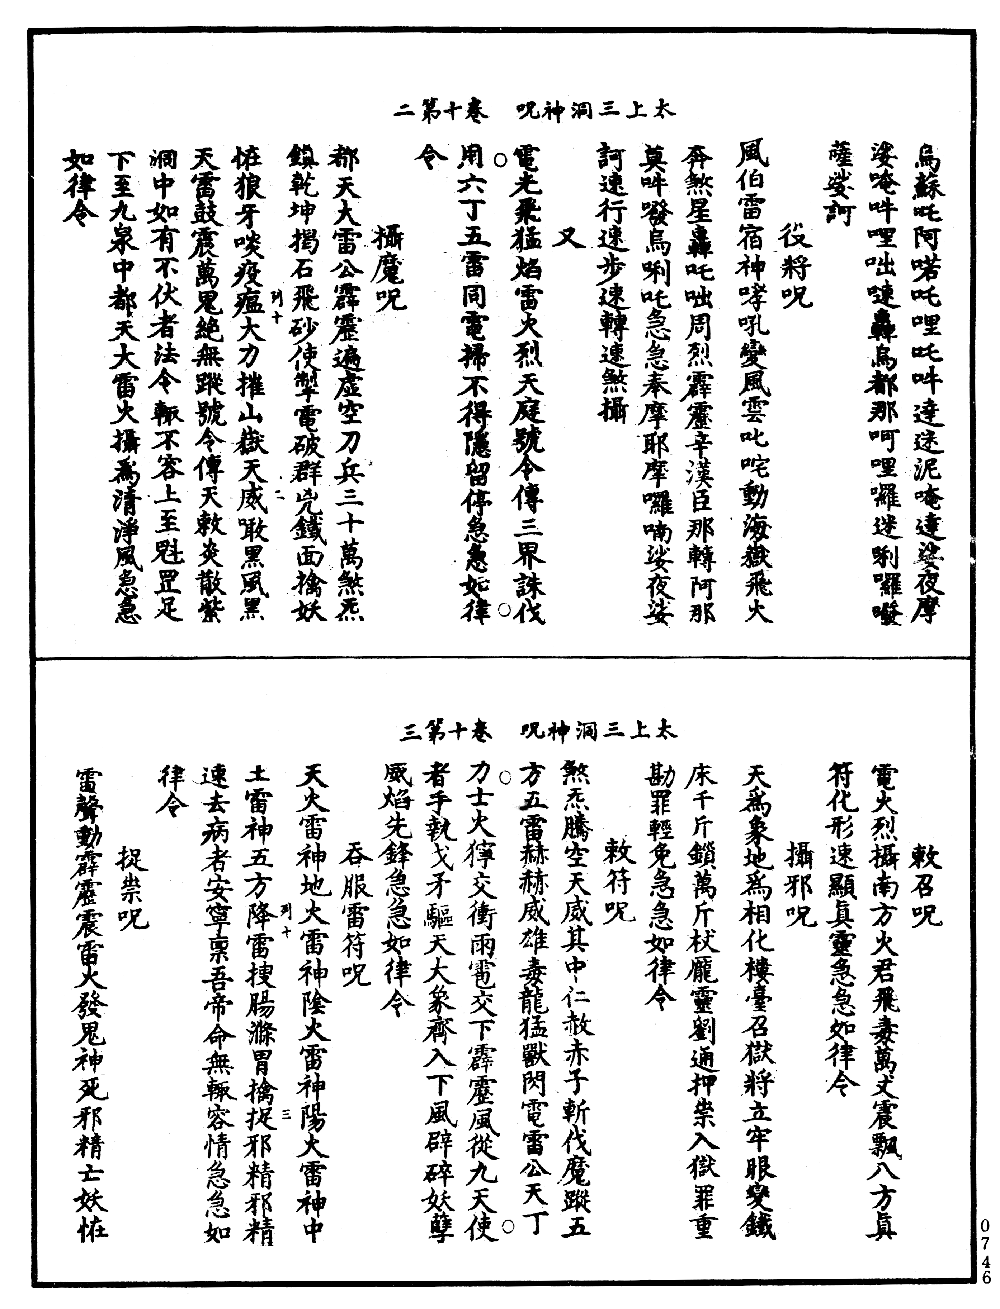 太上三洞神呪　卷十第二
烏蘇吒阿喏吒哩吒吽達迷泥唵達娑夜摩
娑唵吽哩咄㗚轟烏都那呵哩囉迷唎囉㘄
薩娑訶
役將呪
風伯雷宿神哮吼變風雲叱咤動海嶽飛火
奔煞星轟吒咄周烈霹靂辛漢臣那轉阿那
莫吽㘄烏唎吒急急奉摩耶摩囉喃娑夜娑
訶速行速步速轉速煞攝
又
電光乘猛焰雷火烈天庭號令傳三界誅伐
用六丁五雷同電掃不得隱留停急急如律
令
攝魔呪
都天大雷公霹靂遍虛空刀兵三十萬煞炁
鎮乾坤揭石飛砂使掣電破群兇鐵面擒妖
列十
二
怪狼牙啖疫瘟大力摧山嶽天威敢黑風黑
天雷鼓震萬鬼絕無蹤號令傳天敕炎散紫
洞中如有不伏者法令輒不容上至魁罡足
下至九泉中都天大雷火攝爲清淨風急急
如律令
太上三洞神呪　卷十第三
敕召呪
電火烈攝南方火君飛毒萬丈震飄八方眞
符化形速顯眞靈急急如律令
攝邪呪
天爲象地爲相化樓臺召獄將立牢眼變鐵
床千斤鎖萬斤杖龐靈劉通押祟入獄罪重
勘罪輕免急急如律令
敕符呪
煞炁騰空天威其中仁赦赤子斬伐魔蹤五
方五雷赫赫威雄毒龍猛獸閃電雷公天丁
力士火獰交衝雨電交下霹靂風從九天使
者手執戈矛驅天大象齊入下風辟碎妖孽
威焰先鋒急急如律令
吞服雷符呪
天火雷神地火雷神陰火雷神陽火雷神中
列十
三
土雷神五方降雷搜腸滌胃擒捉邪精邪精
速去病者安寧稟吾帝命無輒容情急急如
律令
捉祟呪
雷聲動霹靂震雷火發鬼神死邪精亡妖怪
0746